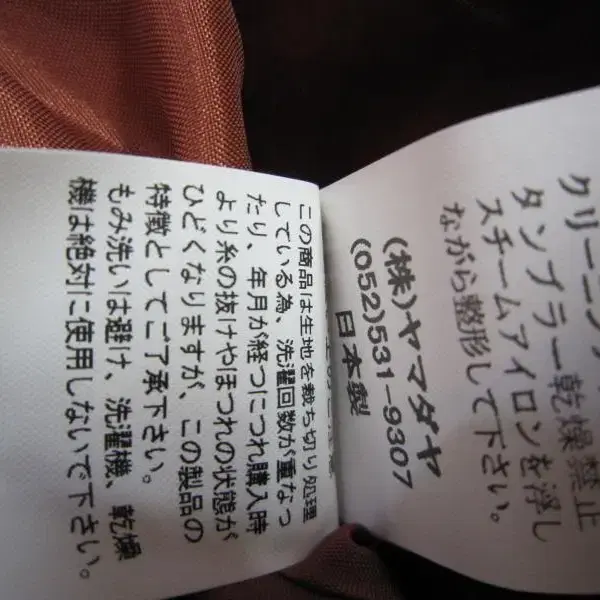 この商品は生地を裁ち切り処理
している為、洗濯回数が重なっ
たり、年月が経つにつれ購入時
より糸の抜けやほつれの状態が
ひどくなりますが、この製品の
特徴としてご了承下さい。
もみ洗いは避け、洗濯機、乾燥
機は絶対に使用しないで下さい。
クリーニン
タンブラー乾燥禁止
スチームアイロンを浮し
ながら整形して下さい。
(株)ヤマダヤ
(052)531-9307
日本製